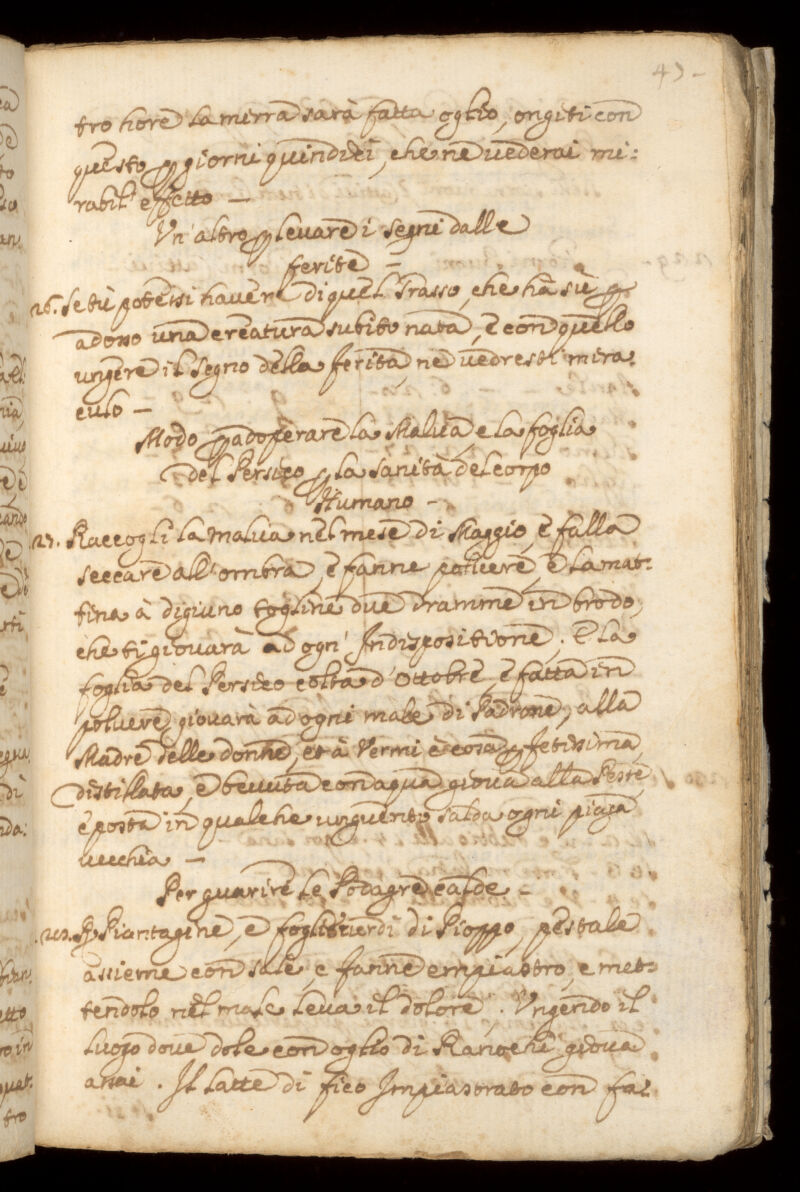 tro hore la mirra sarà fatta oglio, ongiti con
questo p giorni quindici, che ne vederai mi:
rabil' effetto —
Un' altro p levare i segni dalle
ferite —
26. Se tù potessi havere di quel grasso, che hà sù p
adosso una creatura subito nata, è con quello
ungere il segno della ferita, ne vedresti mira:
culo —
Modo p adoperare la Malva, e la foglia
del Persico p la sanità del corpo
Humano —
27. Raccogli la malva nel mese di Maggio, è falla
seccare all' ombra, è fanne polvere, è la mat:
tina à digiuno togline due dramme in brodo,
che ti giovarà ad ogn' Indispositione. E la
foglia del Persico colta d' Ottobre è fatta in
polvere, giovarà ad ogni male di Padrone, alla
Madre delle donne, et à Vermi è cosa pfetissima,
distillata, è bevuta con aqua giova alla Peste,
è posta in qualche unguento salda ogni piaga
vecchia —
Per guarire le Podagre calde —
28. Piantagine, è foglie verdi di Pioppo, pestale
assieme con sale, e fanne empiastro, e met:
tendolo nel male leva il dolore. Ungendo il
luogo dove dole con oglio di Ranochi giova
assai. Il latte di fico Impiastrato con fa: